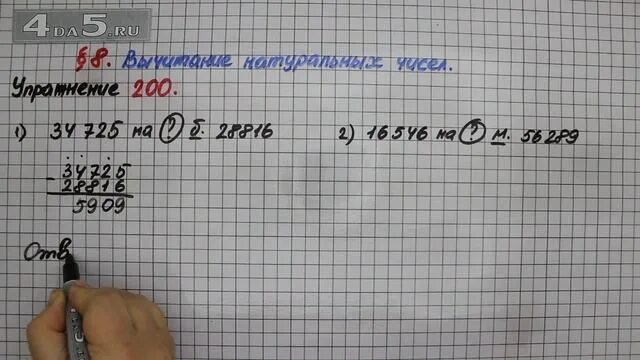 4DA5.RU
§ 8. Вычитание натуральных чисел.
Упражнение 200.
1) 34 725 на ? б. 28816
2) 16 546 на ? м. 56 289
- 34725
28816
5909
Отв